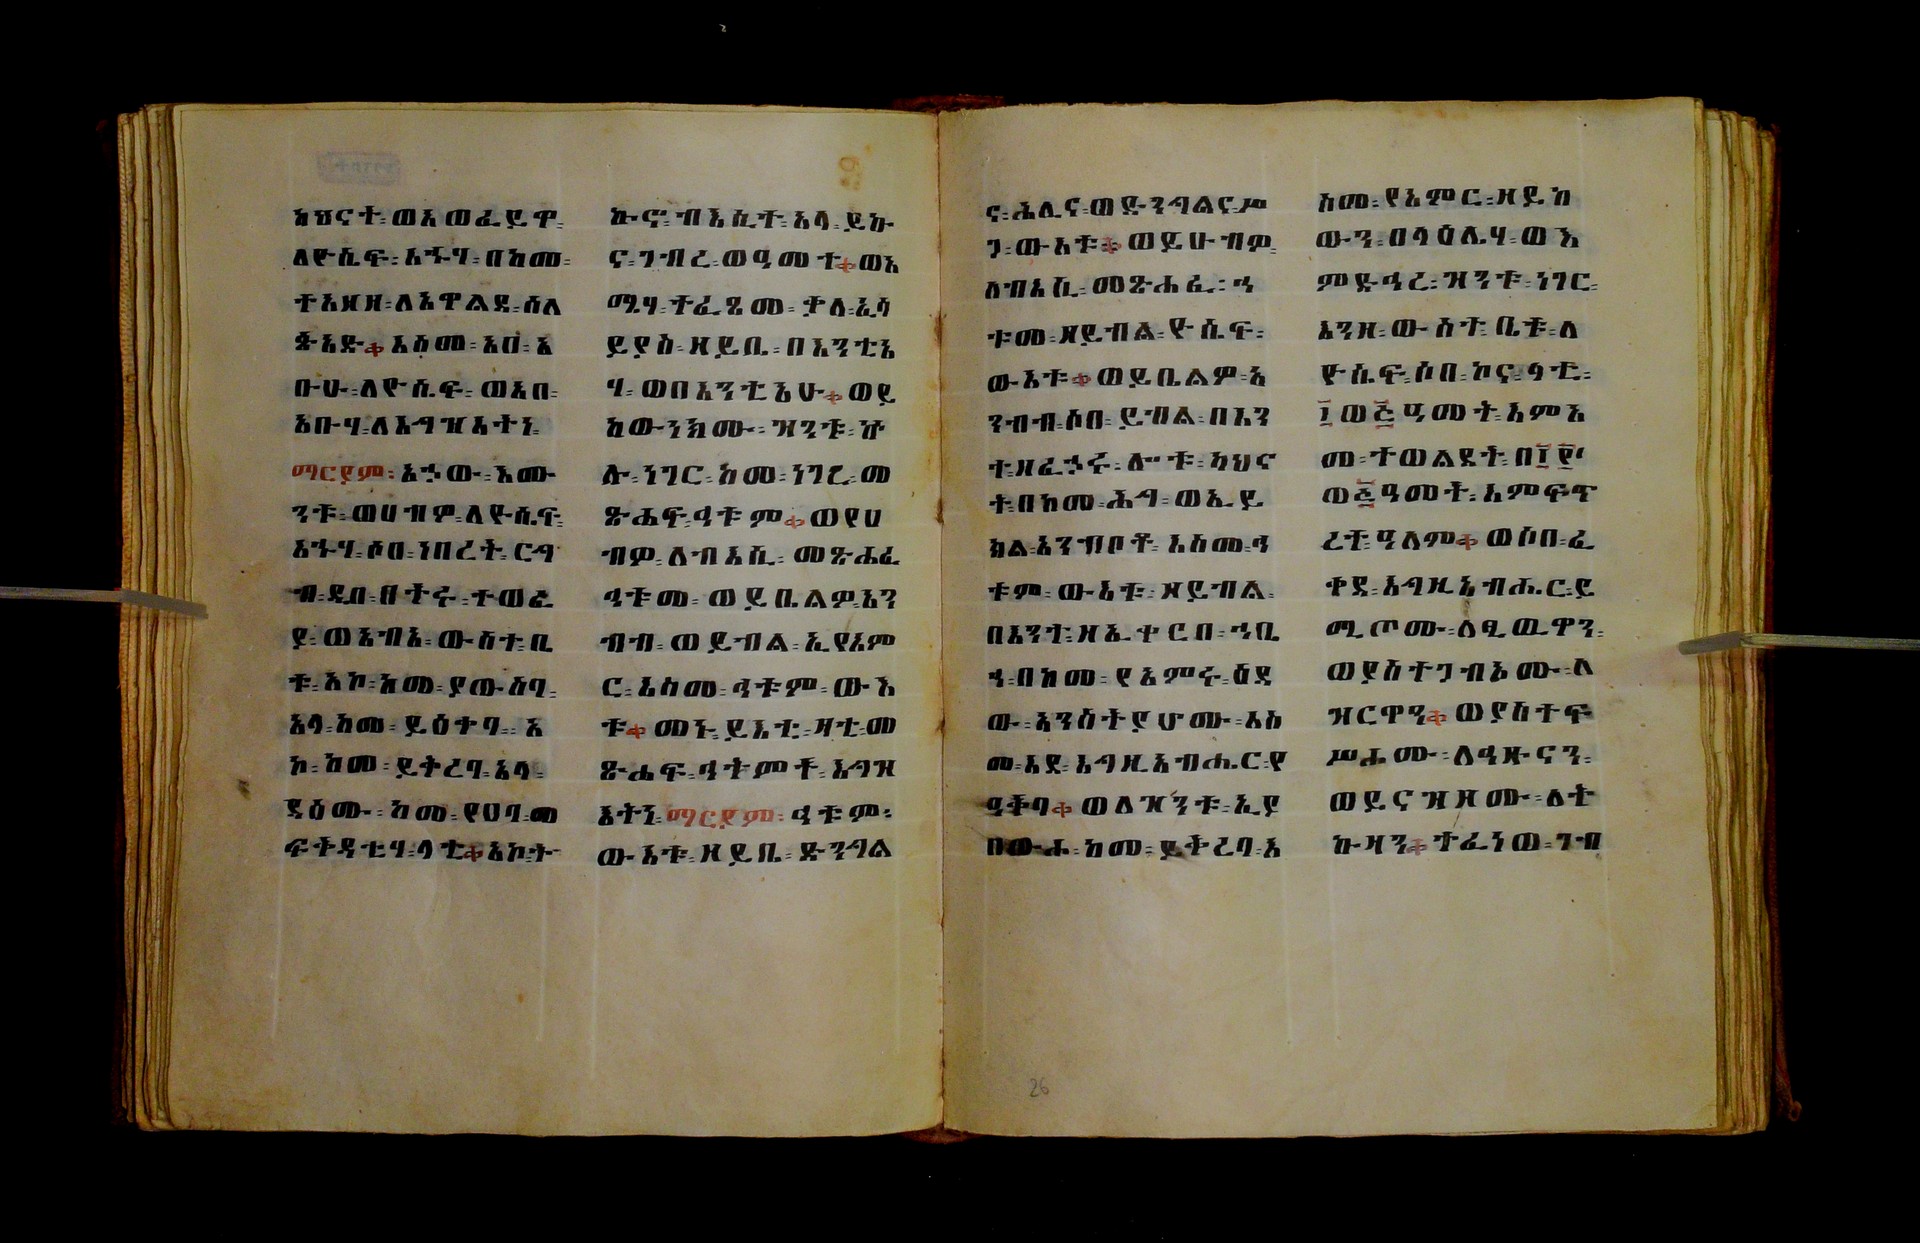 ከህናተ፡ወእወፈይዋ፡
ለዮሴፍ፡እኁሃ፡በከመ፡
ተአዘዘ፡ለአዋልደ፡ሰለ
ጰአድ።እስመ፡አቡ፡አ
ቡሁ፡ለዮሴፍ፡ወአበ፡
አቡሃ፡ለእግዝእትነ፡
ማርያም፡አኃው፡እሙ
ንቱ፡ወሀብዎ፡ለዮሴፍ፡
እኁሃ፡ሶበ፡ነበረት፡ርግ
ብ፡ዲበ፡በትሩ፡ተወፊ
ያ፡ወአብአ፡ውስተ፡ቤ
ቱ፡አኮ፡ከመ፡ያውስባ፡
አላ፡ከመ፡ይዕቀባ፡አ
ኮ፡ከመ፡ይቅረባ፡አላ፡
ደዕሙ፡ከመ፡የሀባ፡መ
ፍቅዳቲሃ፡ላቲ።አኮት
ኩኖ፡ብእሲተ፡አላ፡ይኩ
ና፡ገብረ፡ወዓመተ።ወእ
ሚሃ፡ተፈጸመ፡ቃለ፡ኢሳ
ይያስ፡ዘይቤ፡በእንቲአ
ሃ፡ወበእንቲአሁ።ወይ
ከውንክሙ፡ዝንቱ፡ኵ
ሉ፡ነገር፡ከመ፡ነገረ፡መ
ጽሐፍ፡ኅቱም።ወየሀ
ብዎ፡ለብእሲ፡መጽሐፈ
ኅቱመ፡ወይቤልዎ፡አን
ብብ፡ወይብል፡ኢየአም
ር፡እስመ፡ኅቱም፡ውእ
ቱ።መኑ፡ይእቲ፡ዛቲ፡መ
ጽሐፍ፡ኅትምት፡እግዝ
እትነ፡ማርያም፡ኅቱም፡
ውእቱ፡ዘይቤ፡ድንግል
ና፡ሕሊና፡ወድንግልና፡ሥ
ጋ፡ውእቱ።ወይሁብዎ፡
ለብእሲ፡መጽሐፈ፡ኅ
ቱመ፡ዘይብል፡ዮሴፍ፡
ውእቱ።ወይቤልዎ፡አ
ንብብ፡ሶበ፡ይብል፡በእን
ተ፡ዘፈኃሩ፡ሎቱ፡ካህና
ት፡በከመ፡ሕግ፡ወኢይ
ክል፡አንብቦቶ፡እስመ፡ኅ
ቱም፡ውእቱ፡ዘይብል፡
በእንተ፡ዘኢቀርበ፡ኀቤ
ሃ፡በከመ፡የአምሩ፡ዕደ
ው፡አንስትያሆሙ፡እስ
መ፡እደ፡እግዚአብሔር፡የ
ዓቅባ።ወለዝንቱ፡ኢያ
በውሐ፡ከመ፡ይቅረባ፡እ
ስመ፡የአምር፡ዘይከ
ውን፡በላዕሌሃ፡ወእ
ምድኅረ፡ዝንቱ፡ነገር፡
እንዘ፡ውስተ፡ቤቱ፡ለ
ዮሴፍ፡ሶበ፡ኮና፡ላቲ፡
፲ወ፭ዓመት፡እምአ
መ፡ተወልደት፡በ፲፻
ወ፭ዓመት፡እምፍጥ
ረተ፡ዓለም።ወሶበ፡ፈ
ቀደ፡እግዚአብሔር፡ይ
ሚጦሙ፡ለፄዉዋን፡
ወያስተጋብኦሙ፡ለ
ዝርዋን።ወያስተፍ
ሥሖሙ፡ለኅዙናን፡
ወይናዝዞሙ፡ለት
ኩዛን።ተፈነወ፡ገብ
26